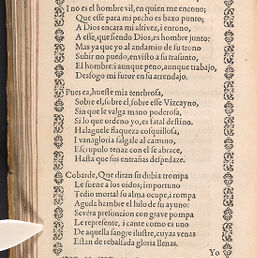 I no es el hombre vil, en quien me encono;
Que esse para mi pecho es baxo punto;
A Dios encara mi altivez, i entono,
A esse, que siendo Dios, es hombre junto:
Mas ya que yo al andamio de su trono
Subir no puedo, envisto a su trasunto,
El hombre; i aunque peno, aunque trabajo,
Desfogo mi furor en su arrendajo.
Pues ea, hueste mia tenebrosa,
Sobre el, sobre el, sobre esse Vizcayno,
Sin que le valga mano poderosa,
Si lo que ordeno yo, es fatal destino.
Halaguele flaqueza cosquillosa,
I vanagloria salgale al camino,
Escupalo tenaz con el se abrace,
Hasta que sus entrañas despedace.
Cobarde, Que diran su dobia trompa
Le suene a los oidos; importuno
Tedio mortal su alma ocupe, i rompa
Aguda hambre el hilo de su ayuno:
Severa presuncion con grave pompa
Le represente, i cante como es uno
De aquella sangre ilustre, cuyas venas
Estan de rebalsada gloria llenas.
Yo